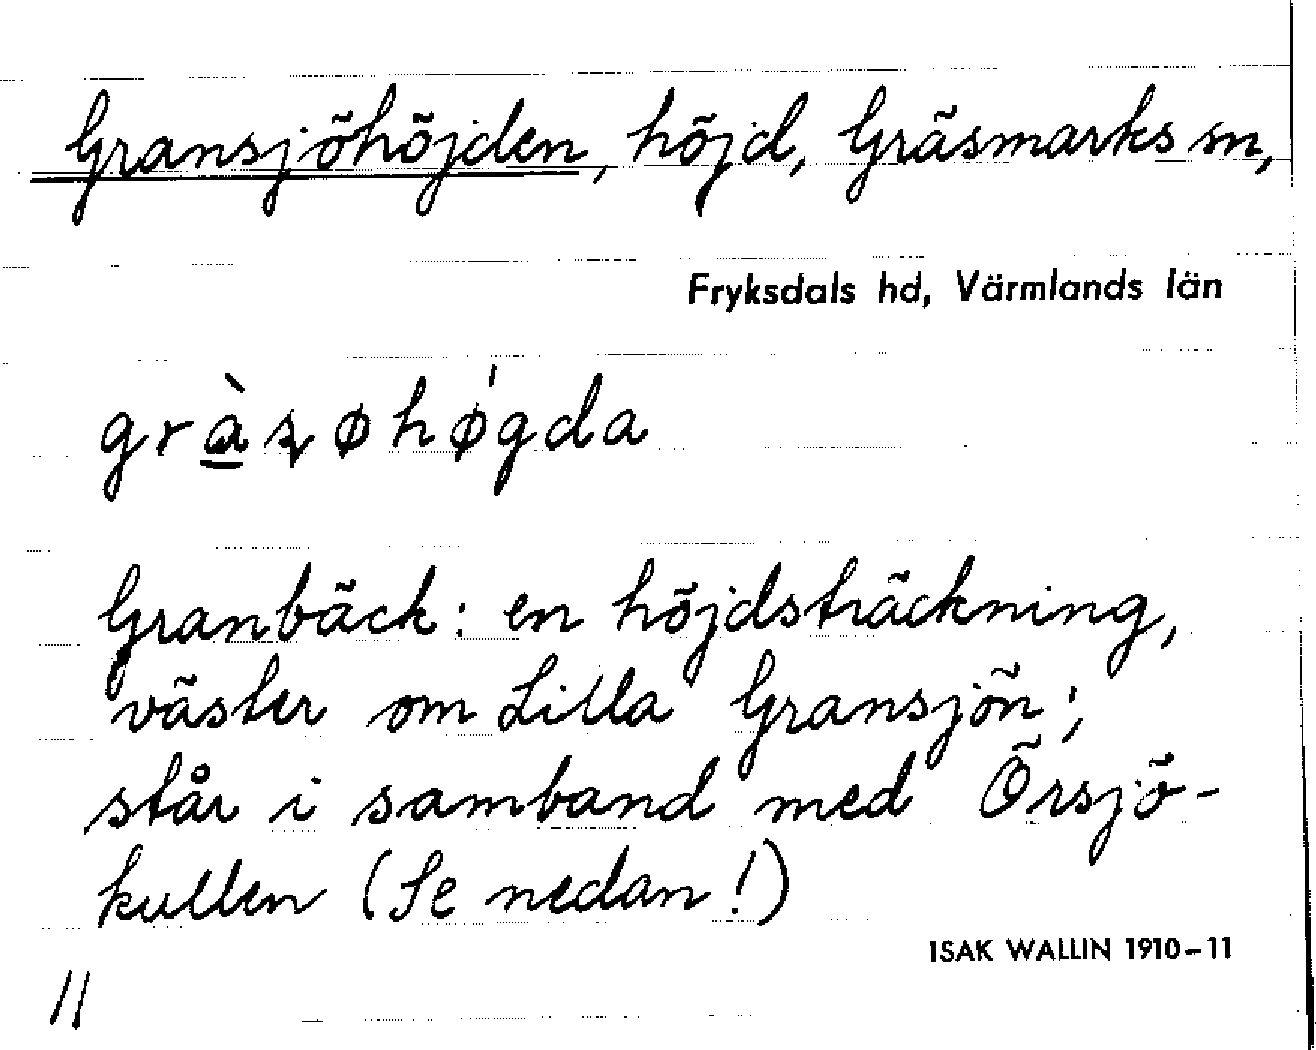 Gransjöhöjden, höjd, Gräsmarks sn,
Fryksdals hd, Värmlands län
Granbäck: en höjdsträckning,
väster om Lilla Gransjön;
står i samband med Örsjö-
kullen (Se nedan!)
ISAK WALLIN 1910–11